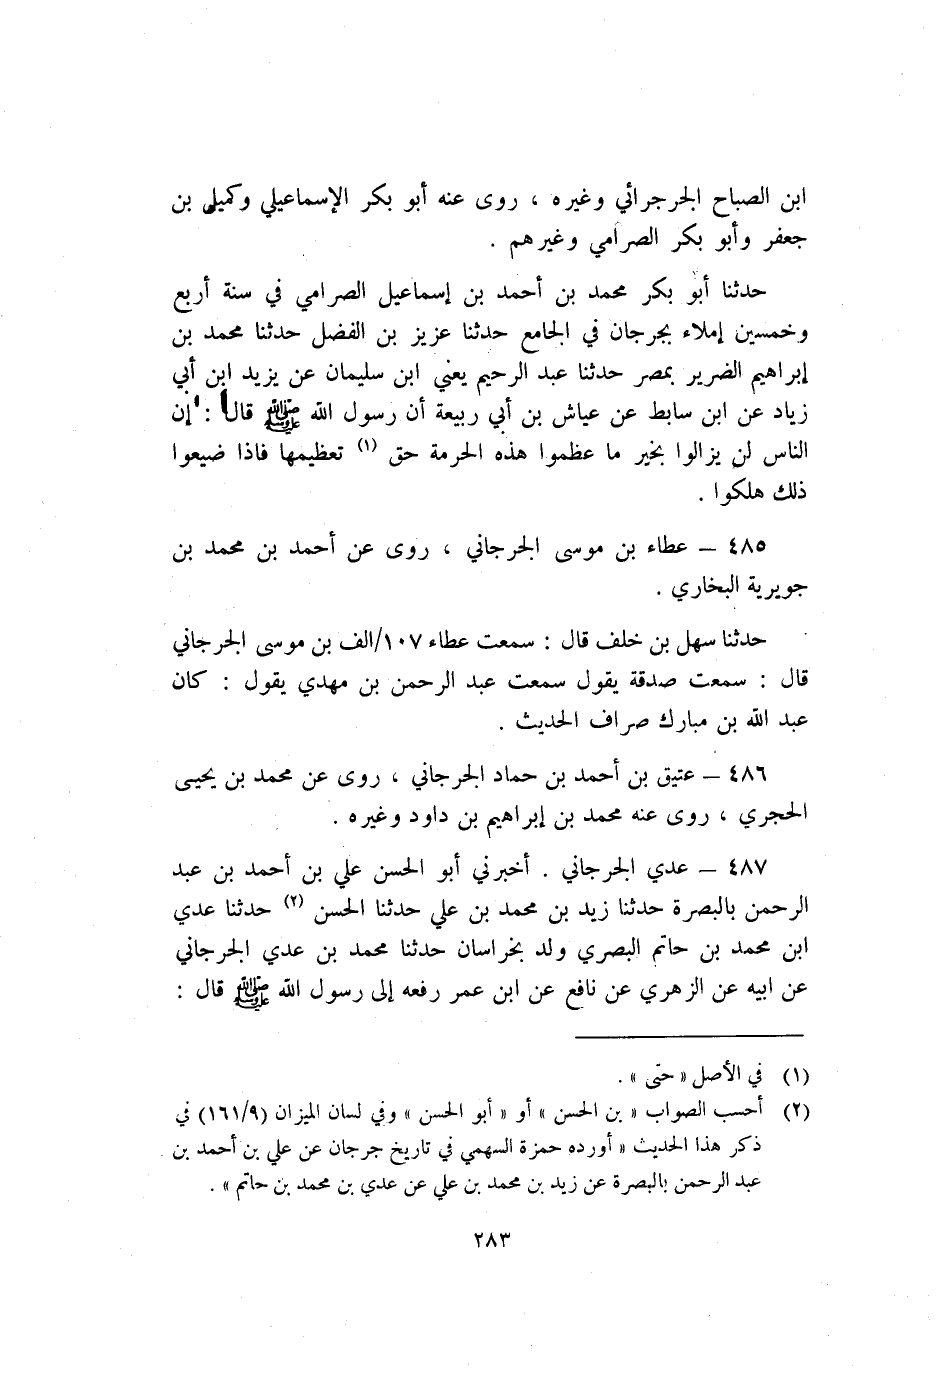 ابن الصباح الجرجرائي وغيره ، روى عنه أبو بكر الإسماعيلي وكميل بن
جعفر وأبو بكر الصرامي وغيرهم .
حدثنا أبو بكر محمد بن أحمد بن إسماعيل الصرامي في سنة أربع
وخمسين إملاء بجرجان في الجامع حدثنا عزيز بن الفضل حدثنا محمد بن
إبراهيم الضرير بمصر حدثنا عبد الرحيم يعني ابن سليمان عن يزيد ابن أبي
زياد عن ابن سابط عن عياش بن أبي ربيعة أن رسول الله ﷺ قال : إن
الناس لن يزالوا بخير ما عظموا هذه الحرمة حق (١) تعظيمها فاذا ضيعوا
ذلك هلكوا .
٤٨٥ – عطاء بن موسى الجرجاني ، روى عن أحمد بن محمد بن
جويرية البخاري .
حدثنا سهل بن خلف قال : سمعت عطاء ١٠٧/الف بن موسى الجرجاني
قال : سمعت صدقة يقول سمعت عبد الرحمن بن مهدي يقول : كان
عبد الله بن مبارك صراف الحديث .
٤٨٦ – عتيق بن أحمد بن حماد الجرجاني ، روى عن محمد بن يحيى
الحجري ، روى عنه محمد بن إبراهيم بن داود وغيره .
٤٨٧ – عدي الجرجاني . أخبرني أبو الحسن علي بن أحمد بن عبد
الرحمن بالبصرة حدثنا زيد بن محمد بن علي حدثنا الحسن (٢) حدثنا عدي
ابن محمد بن حاتم البصري ولد بخراسان حدثنا محمد بن عدي الجرجاني
عن ابيه عن الزهري عن نافع عن ابن عمر رفعه إلى رسول الله ﷺ قال :
(١) في الأصل « حتى » .
(٢) أحسب الصواب « بن الحسن » أو « أبو الحسن » وفي لسان الميزان (١٦١/٩) في
ذكر هذا الحديث « أورده حمزة السهمي في تاريخ جرجان عن علي بن أحمد بن
عبد الرحمن بالبصرة عن زيد بن محمد بن علي عن عدي بن محمد بن حاتم » .
٢٨٣